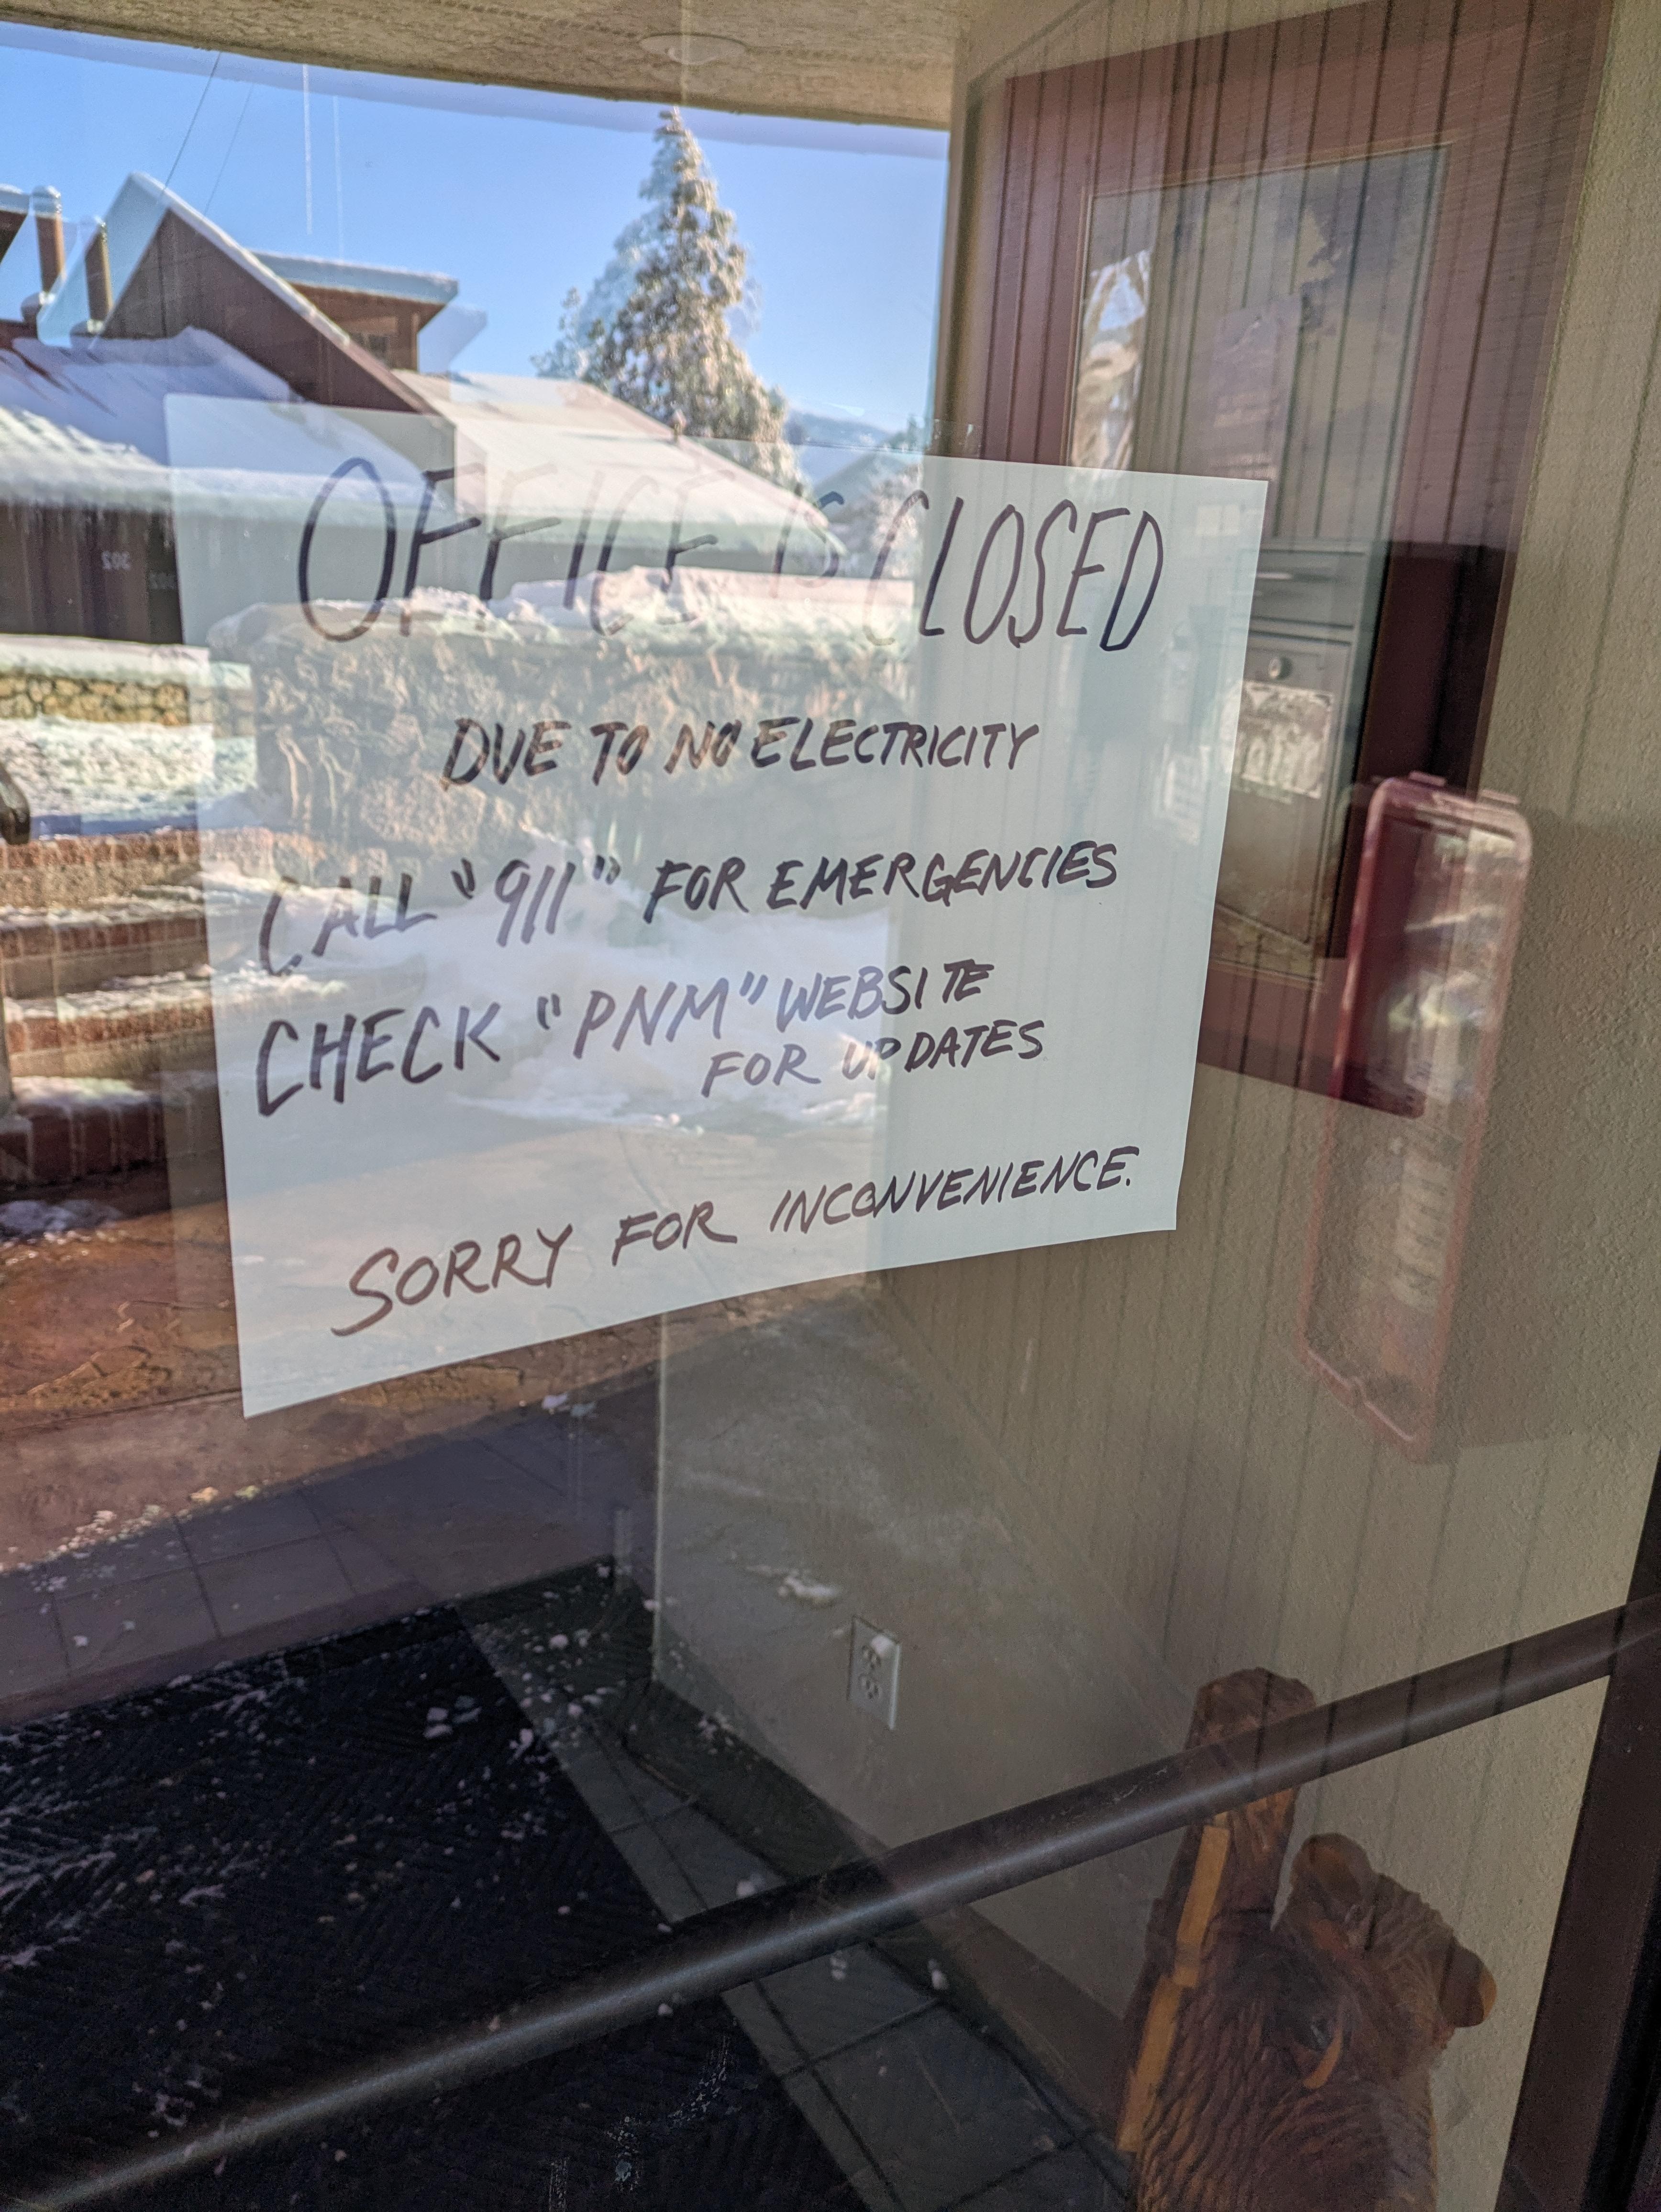 OFFICE IS CLOSED
DUE TO NO ELECTRICITY
CALL "911" FOR EMERGENCIES
CHECK "PNM" WEBSITE
FOR UPDATES
SORRY FOR INCONVENIENCE.
302